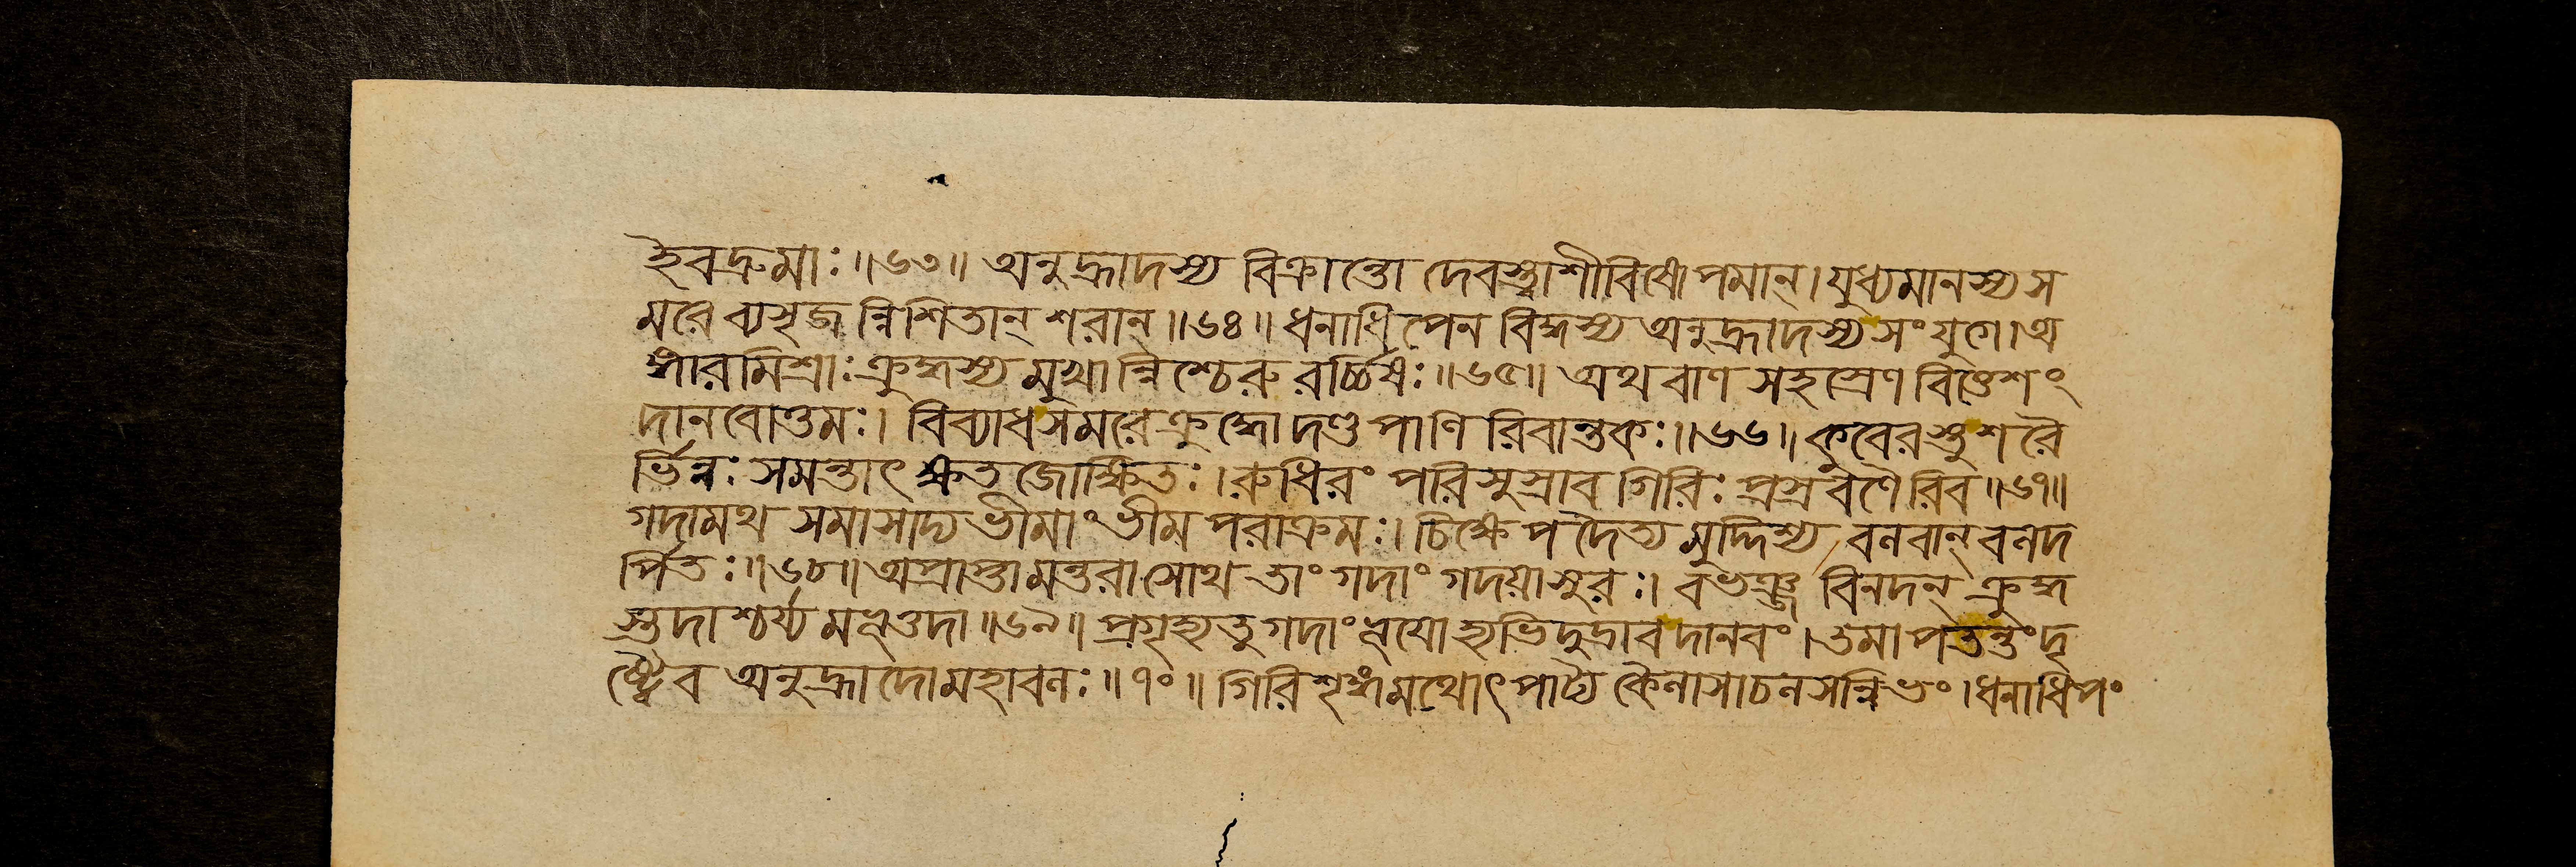 হৈবদ্রুমাঃ ॥৬৩॥ অনুহ্রাদস্য বিক্রান্তো দেবস্ত্বাশীবিষোপমান্। যুধ্যমানস্য স
মরে ব্যসৃজন্নিশিতান্ শরান্ ॥৬৪॥ ধনাধিপেন বিদ্ধস্য অনুহ্রাদস্য সংযুগে। অ
ঙ্গারমিশ্রাঃ ক্রুদ্ধস্য মুখান্নিশ্চেরুরর্চ্চিষঃ ॥৬৫॥ অথ বাণসহস্রেণ বিত্তেশং
দানবোত্তমঃ। বিব্যাধ সমরে ক্রুদ্ধো দণ্ডপাণিরিবান্তকঃ ॥৬৬॥ কুবেরস্তু শরৈ
র্ভিন্নঃ সমন্তাৎ ক্ষতজোক্ষিতঃ। রুধিরং পরিসুস্রাব গিরিঃ প্রস্রবণৈরিব ॥৬৭॥
গদামথ সমাসাদ্য ভীমাং ভীমপরাক্রমঃ। চিক্ষেপ দৈত্যমুদ্দিশ্য বলবান্ বলদ
র্পিতঃ ॥৬৮॥ অপ্রাপ্তামন্তরা সোথ তাং গদাং গদয়াসুরঃ। বভঞ্জ বিনদন্ ক্রুদ্ধ
স্তদাশ্চর্য্যমভূত্তদা ॥৬৯॥ প্রগৃহ্য তু গদাং ভূযো হ্যভিদুদ্রাব দানবং। তমাপতন্তং দৃ
ষ্ট্বৈব অনুহ্রাদো মহাবলঃ ॥৭০॥ গিরিশৃঙ্গমথোৎপাট্য কৈলাসাচলসন্নিভং। ধনাধিপং